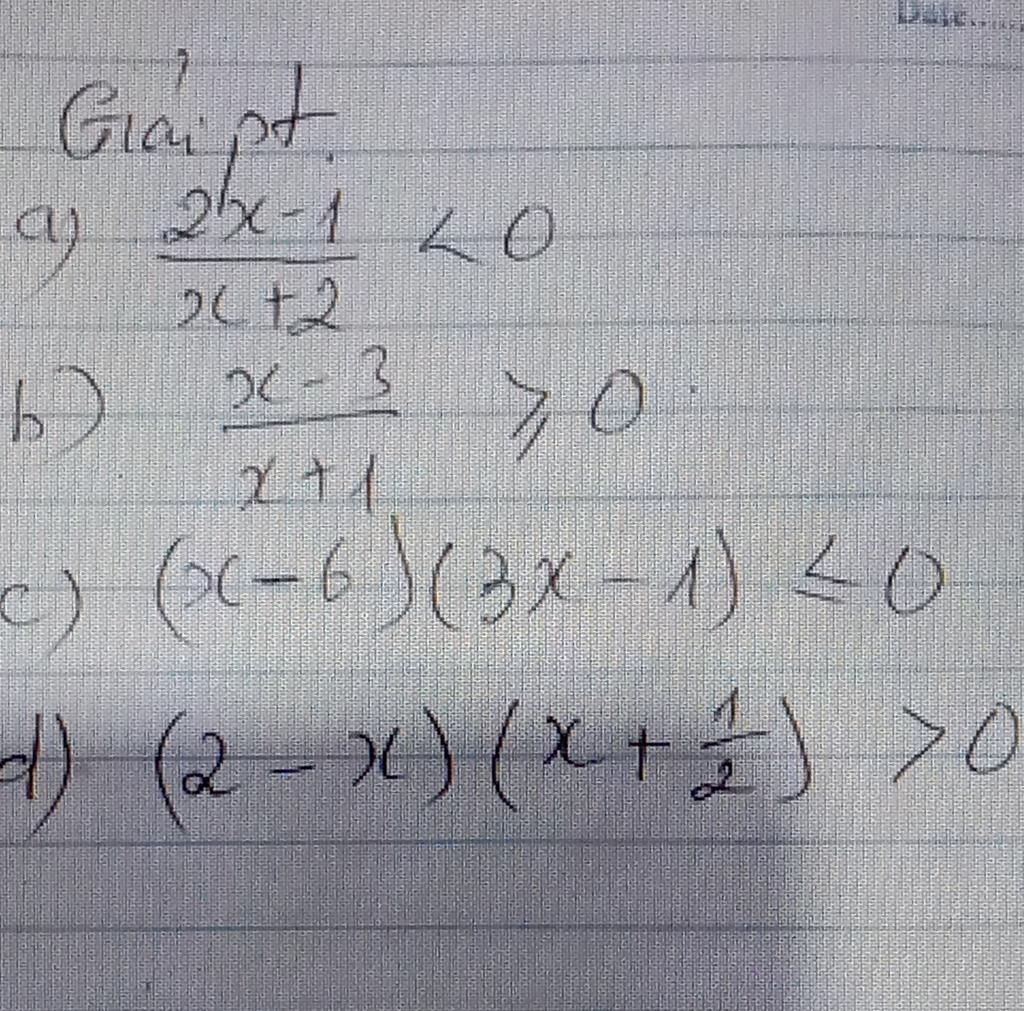 Date......
Giải pt.
a) \frac{2x-1}{x+2} < 0
b) \frac{x-3}{x+1} ⩾ 0
c) (x-6)(3x-1) ≤ 0
d) (2-x)(x+\frac{1}{2}) > 0